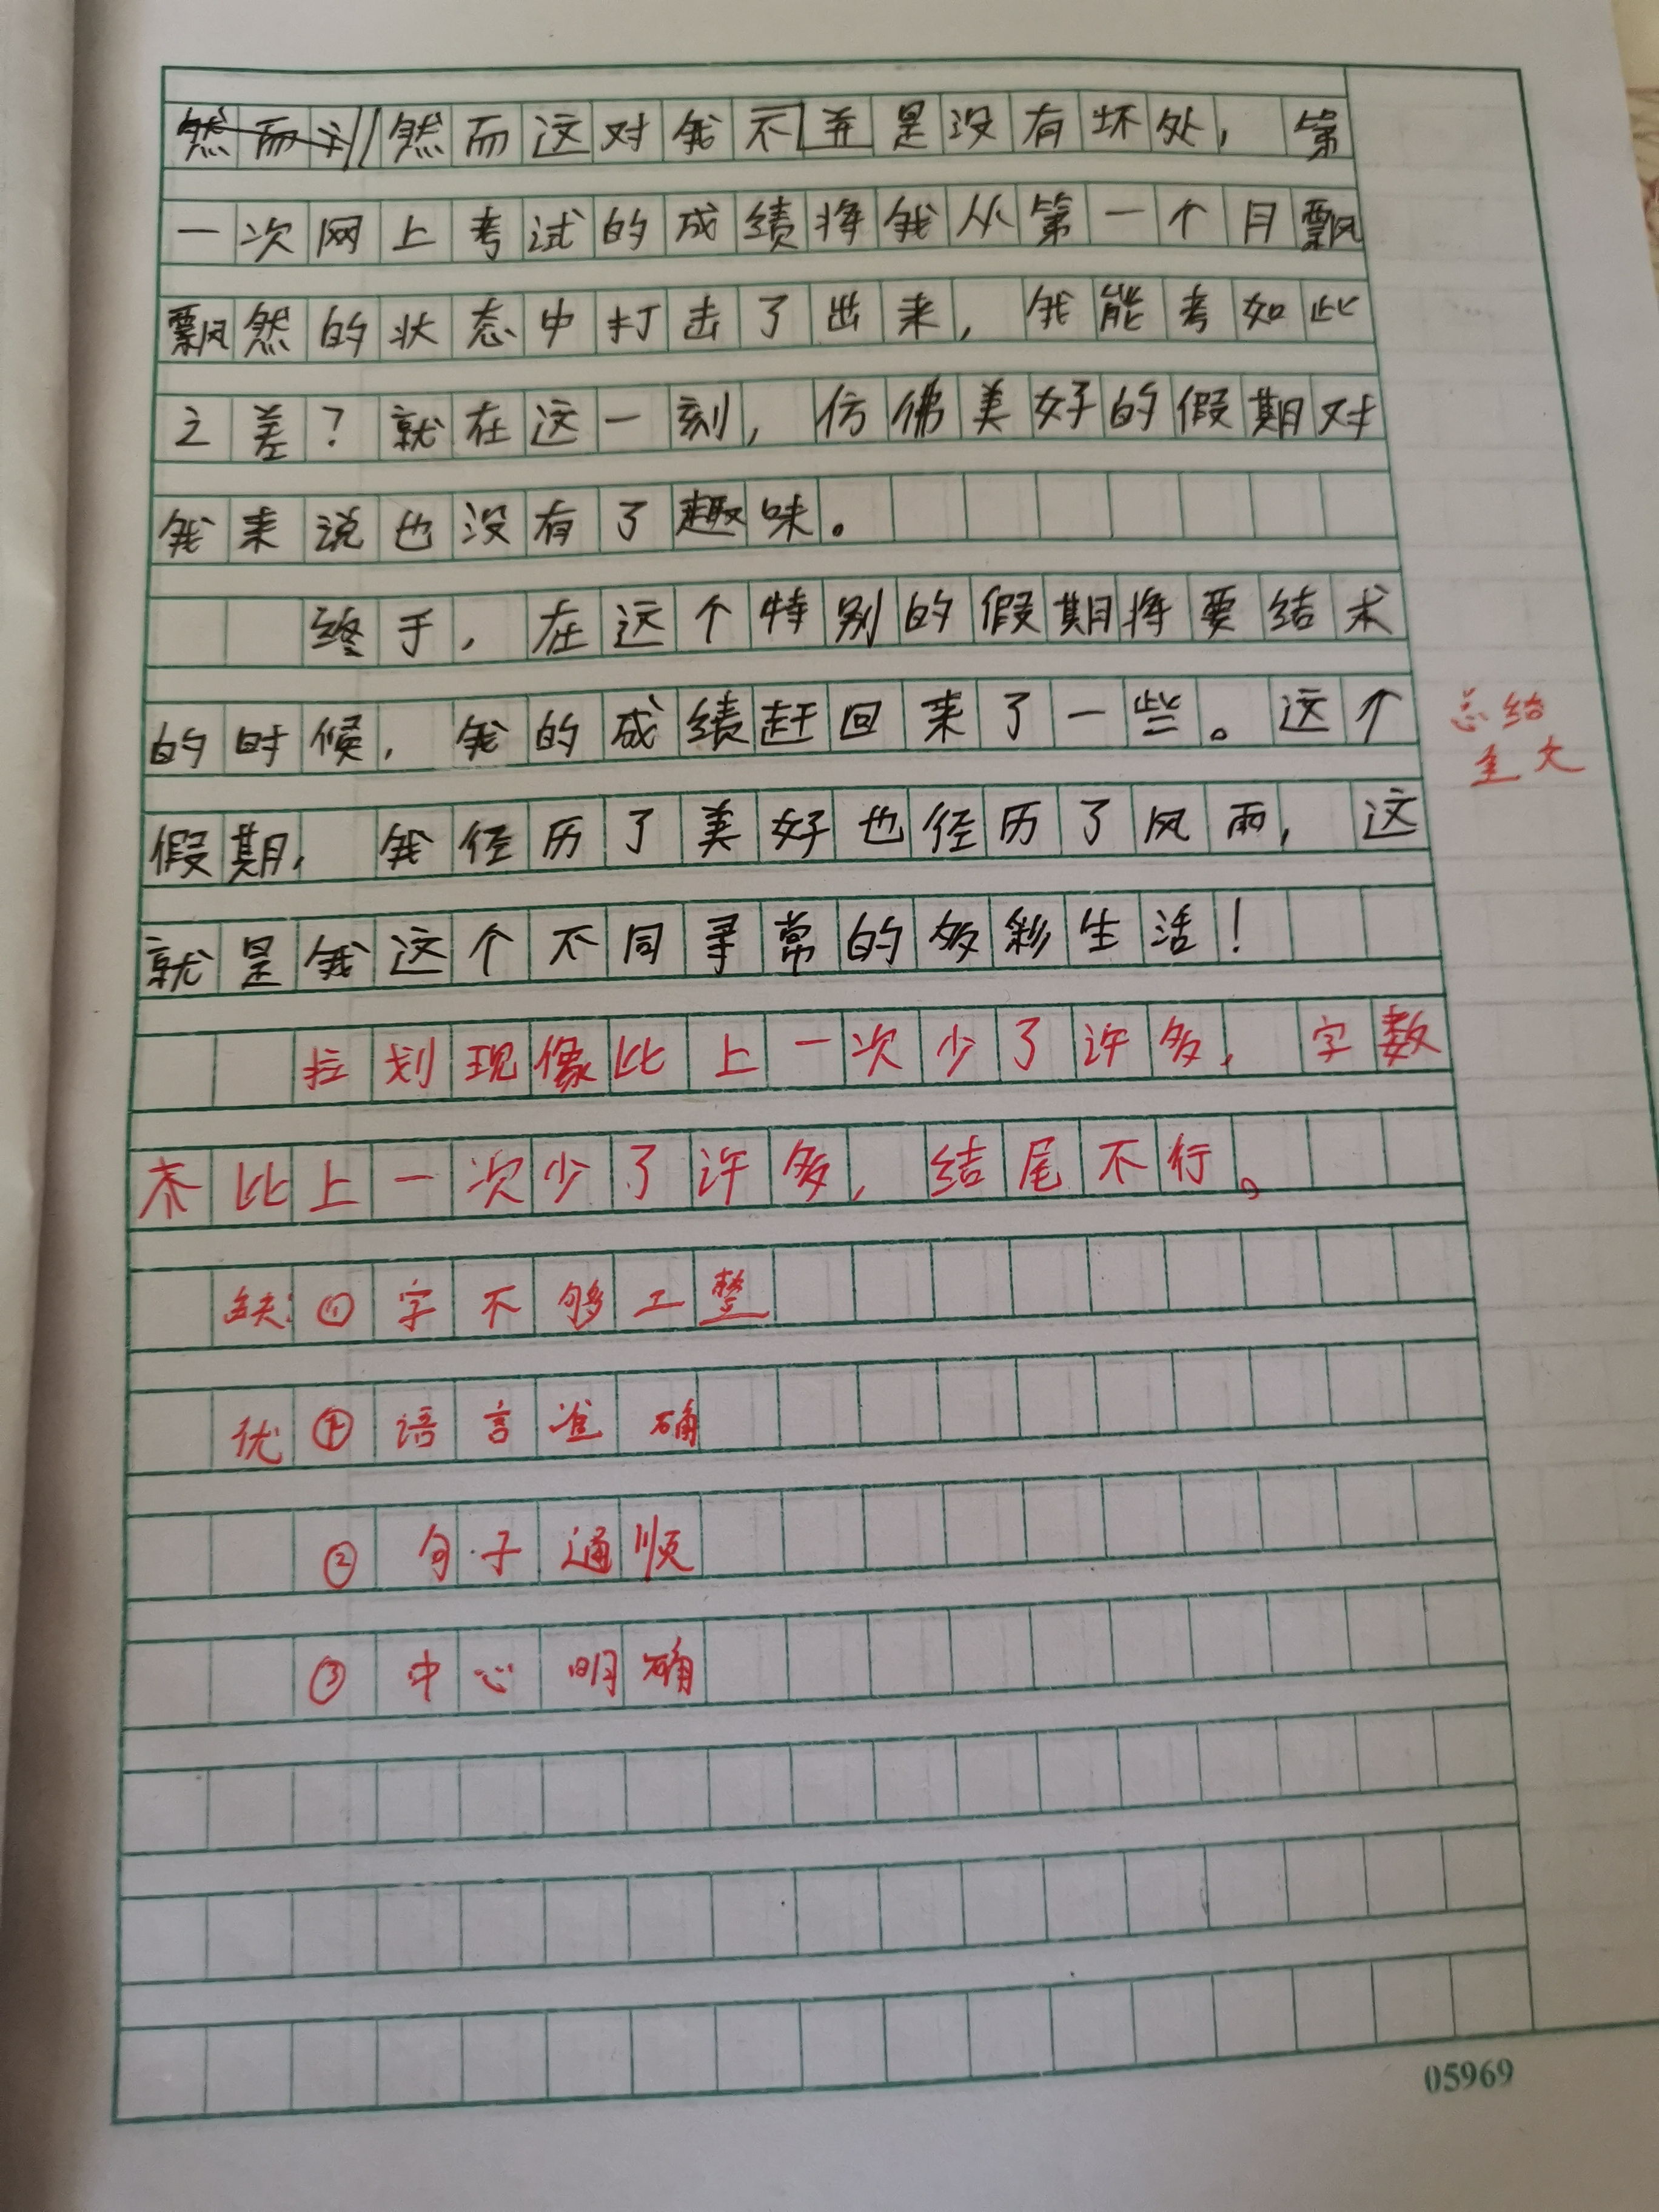 然而这对我不并是没有坏处，第
一次网上考试的成绩将我从第一个月飘
飘然的状态中打击了出来，我能考如此
之差？就在这一刻，仿佛美好的假期对
我来说也没有了趣味。
终于，在这个特别的假期将要结术
的时候，我的成绩赶回来了一些。这个
假期，我径历了美好也径历了风雨，这
就是我这个不同寻常的多彩生活！
总结
全文
拉划现像比上一次少了许多，字数
木比上一次少了许多，结尾不行。
缺：①字不够工整
优①语言准确
②句子通顺
③中心明确
05969